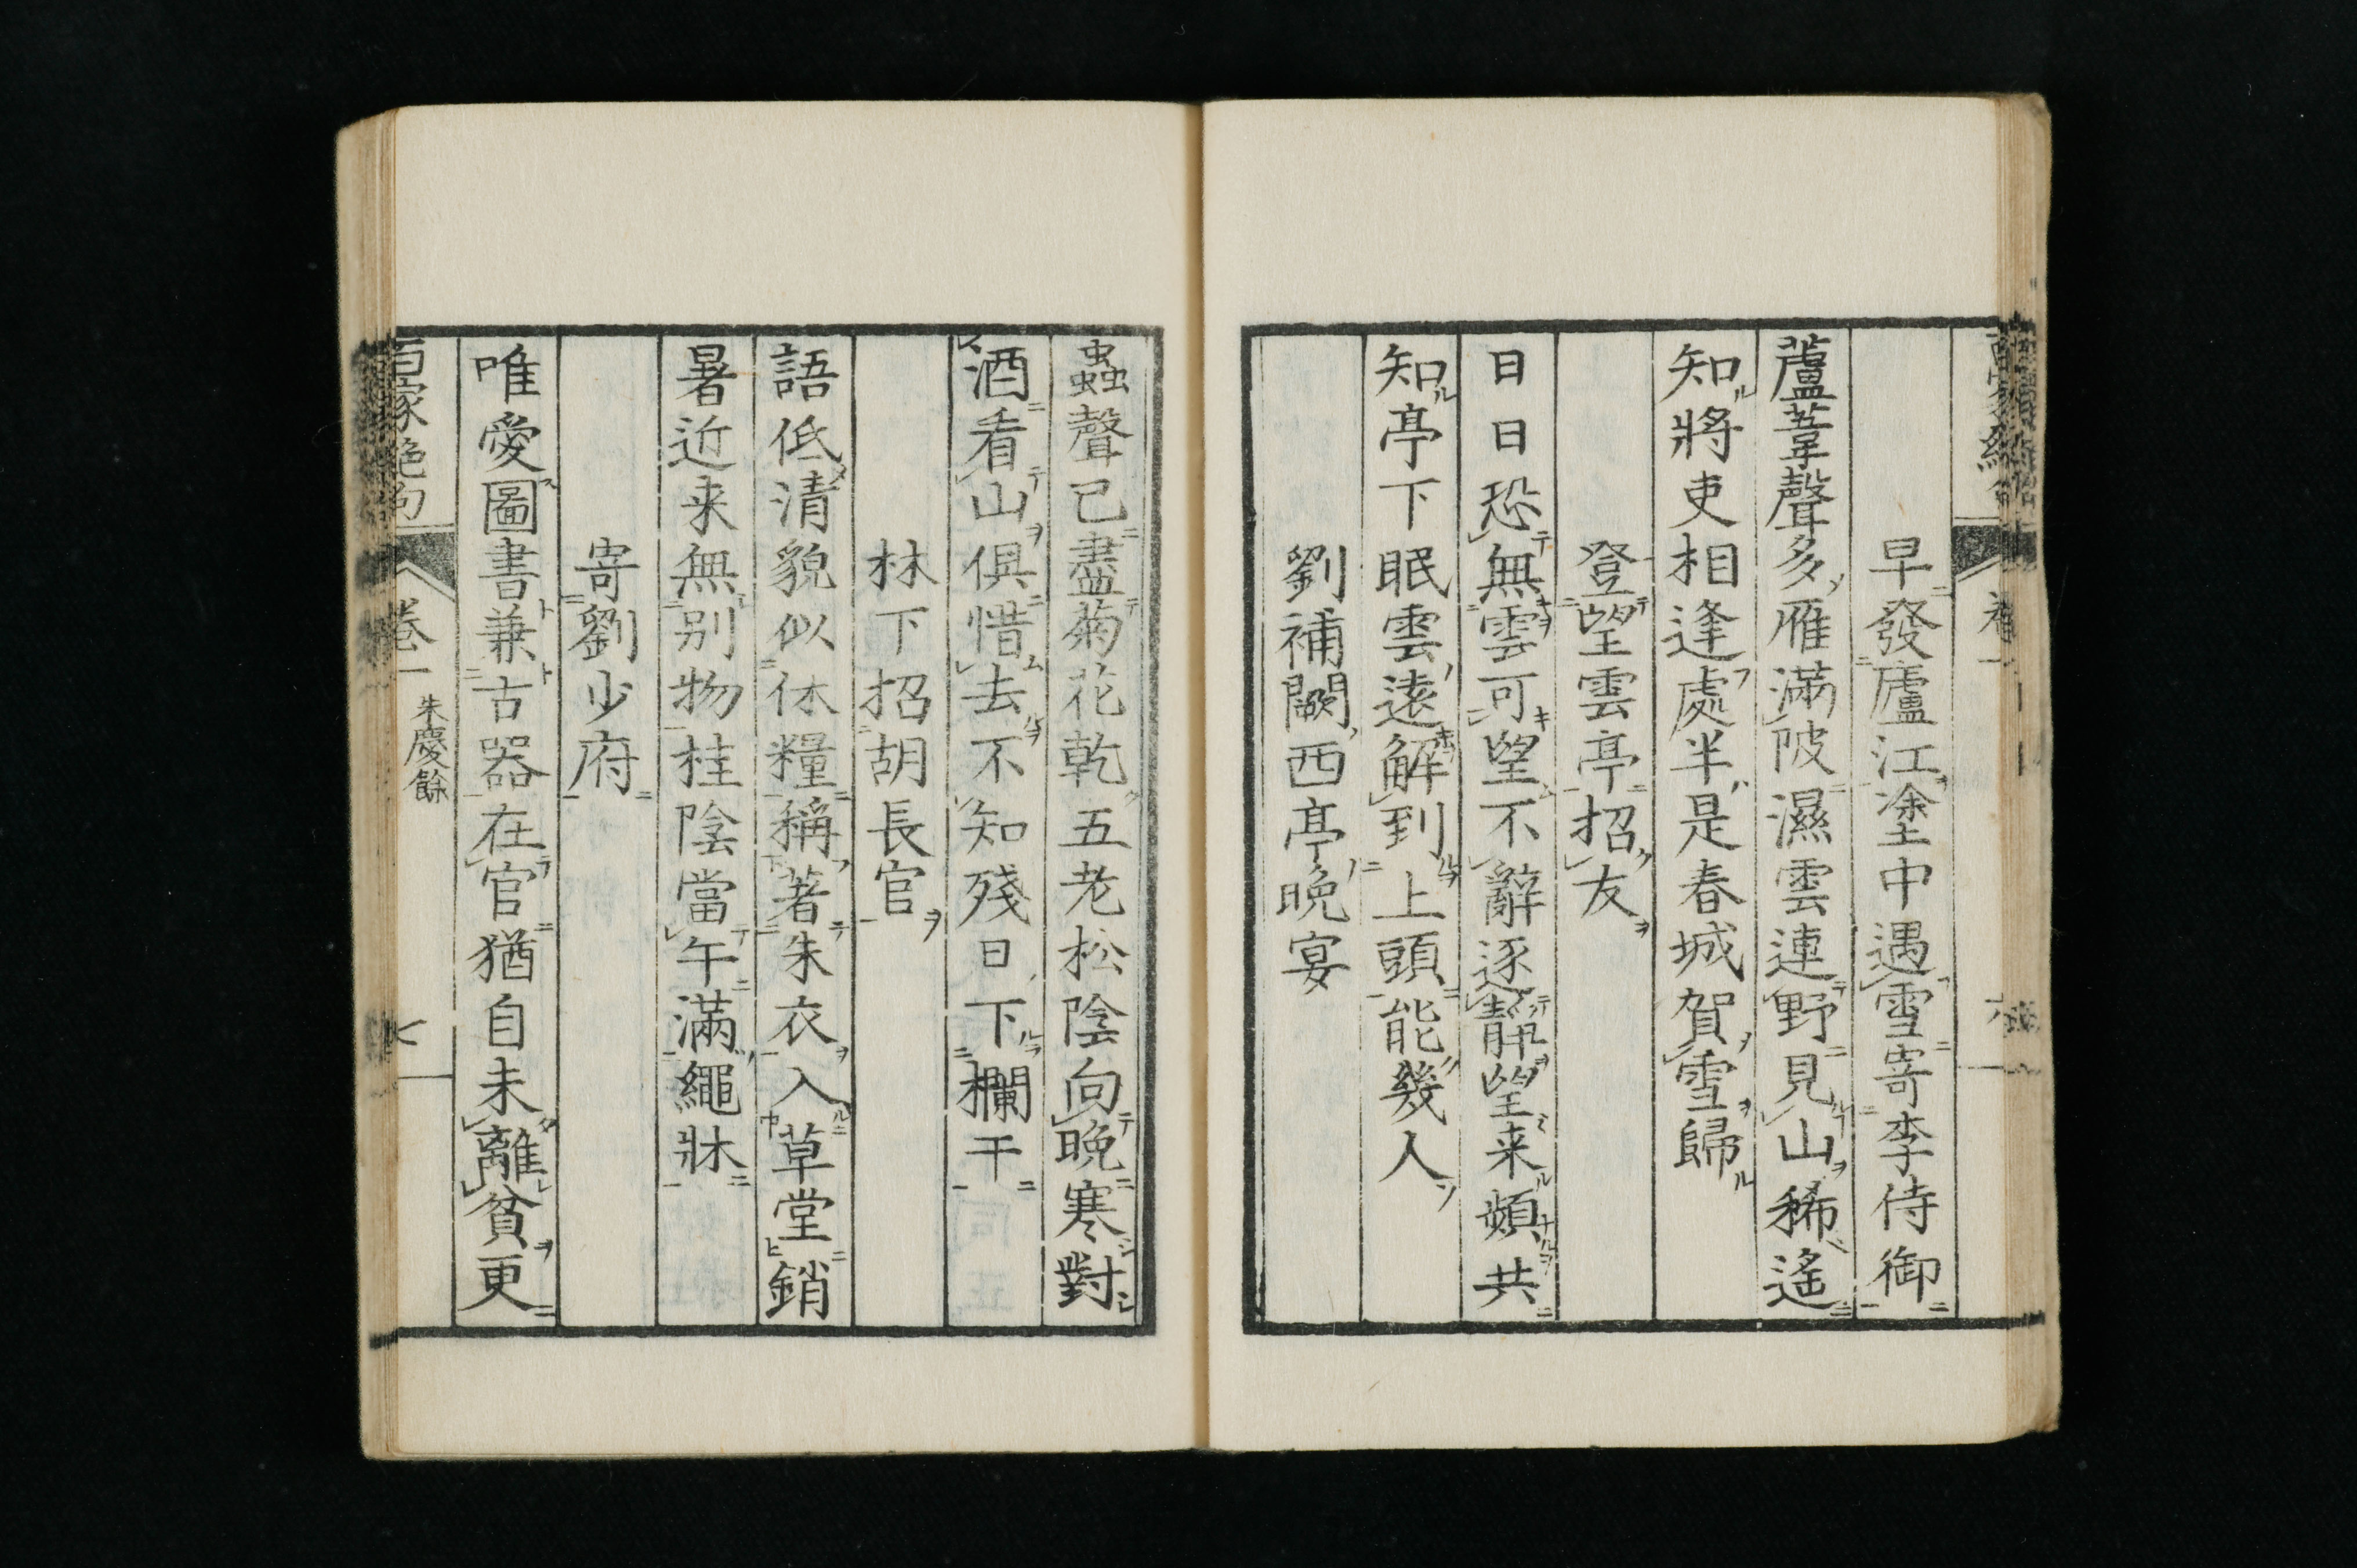 早發廬江塗中遇雪寄李侍御
蘆葦聲多雁滿陂濕雲連野見山稀遙
知將吏相逢處半是春城賀雪歸
登望雲亭招友
日日恐無雲可望不辭逐靜望来頻共
知亭下眠雲遠解到上頭能幾人
劉補闕西亭晩宴
蟲聲已盡菊花乾五老松陰向晩寒對
酒看山俱惜去不知殘日下欄干
林下招胡長官
語低清貌似休糧稱著朱衣入草堂銷
暑近来無別物桂陰當午滿繩牀
寄劉少府
唯愛圖書兼古器在官猶自未離貧更
百家絶句
卷一
朱慶餘
七